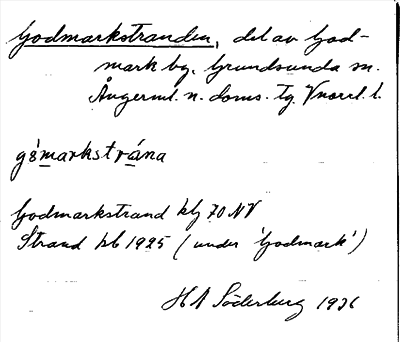 Godmarkstranden, del av God-
mark by, Grundsunda sn.
Ångerml. n. doms. tg. Vnorrl. l.
gȯ̀markstrána
Godmarkstrand kbg 70 NV
Strand hb 1925 (under 'Godmark')
H A Söderberg 1936